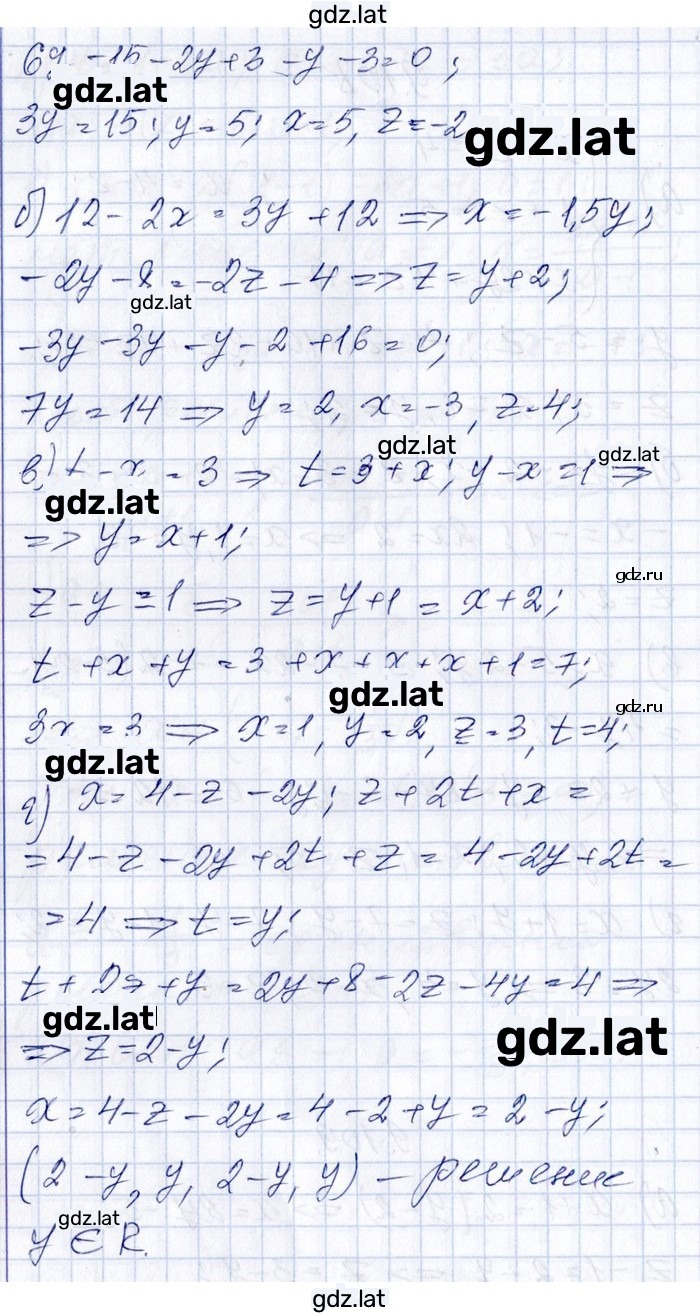 gdz.lat
6y - 15 - 2y + 3 - y - 3 = 0;
gdz.lat
3y = 15; y = 5; x = 5, z = -2
gdz.lat
б) 12 - 2x = 3y + 12 => x = -1,5y;
-2y - 8 = -2z - 4 => z = y + 2;
gdz.lat
-3y - 3y - y - 2 + 16 = 0;
7y = 14 => y = 2, x = -3, z = 4;
gdz.lat
в) t - x = 3 => t = 3 + x; y - x = 1 =>
gdz.lat
gdz.lat
=> y = x + 1;
gdz.ru
z - y = 1 => z = y + 1 = x + 2;
t + x + y = 3 + x + x + x + 1 = 7;
gdz.lat
gdz.ru
3x = 3 => x = 1, y = 2, z = 3, t = 4;
gdz.lat
г) x = 4 - z - 2y; z + 2t + x =
= 4 - z - 2y + 2t + z = 4 - 2y + 2t =
= 4 => t = y;
t + 2x + y = 2y + 8 - 2z - 4y = 4 =>
gdz.lat
gdz.lat
=> z = 2 - y;
x = 4 - z - 2y = 4 - 2 + y = 2 - y;
(2 - y, y, 2 - y, y) - решение
gdz.lat
y ∈ R.
gdz.lat